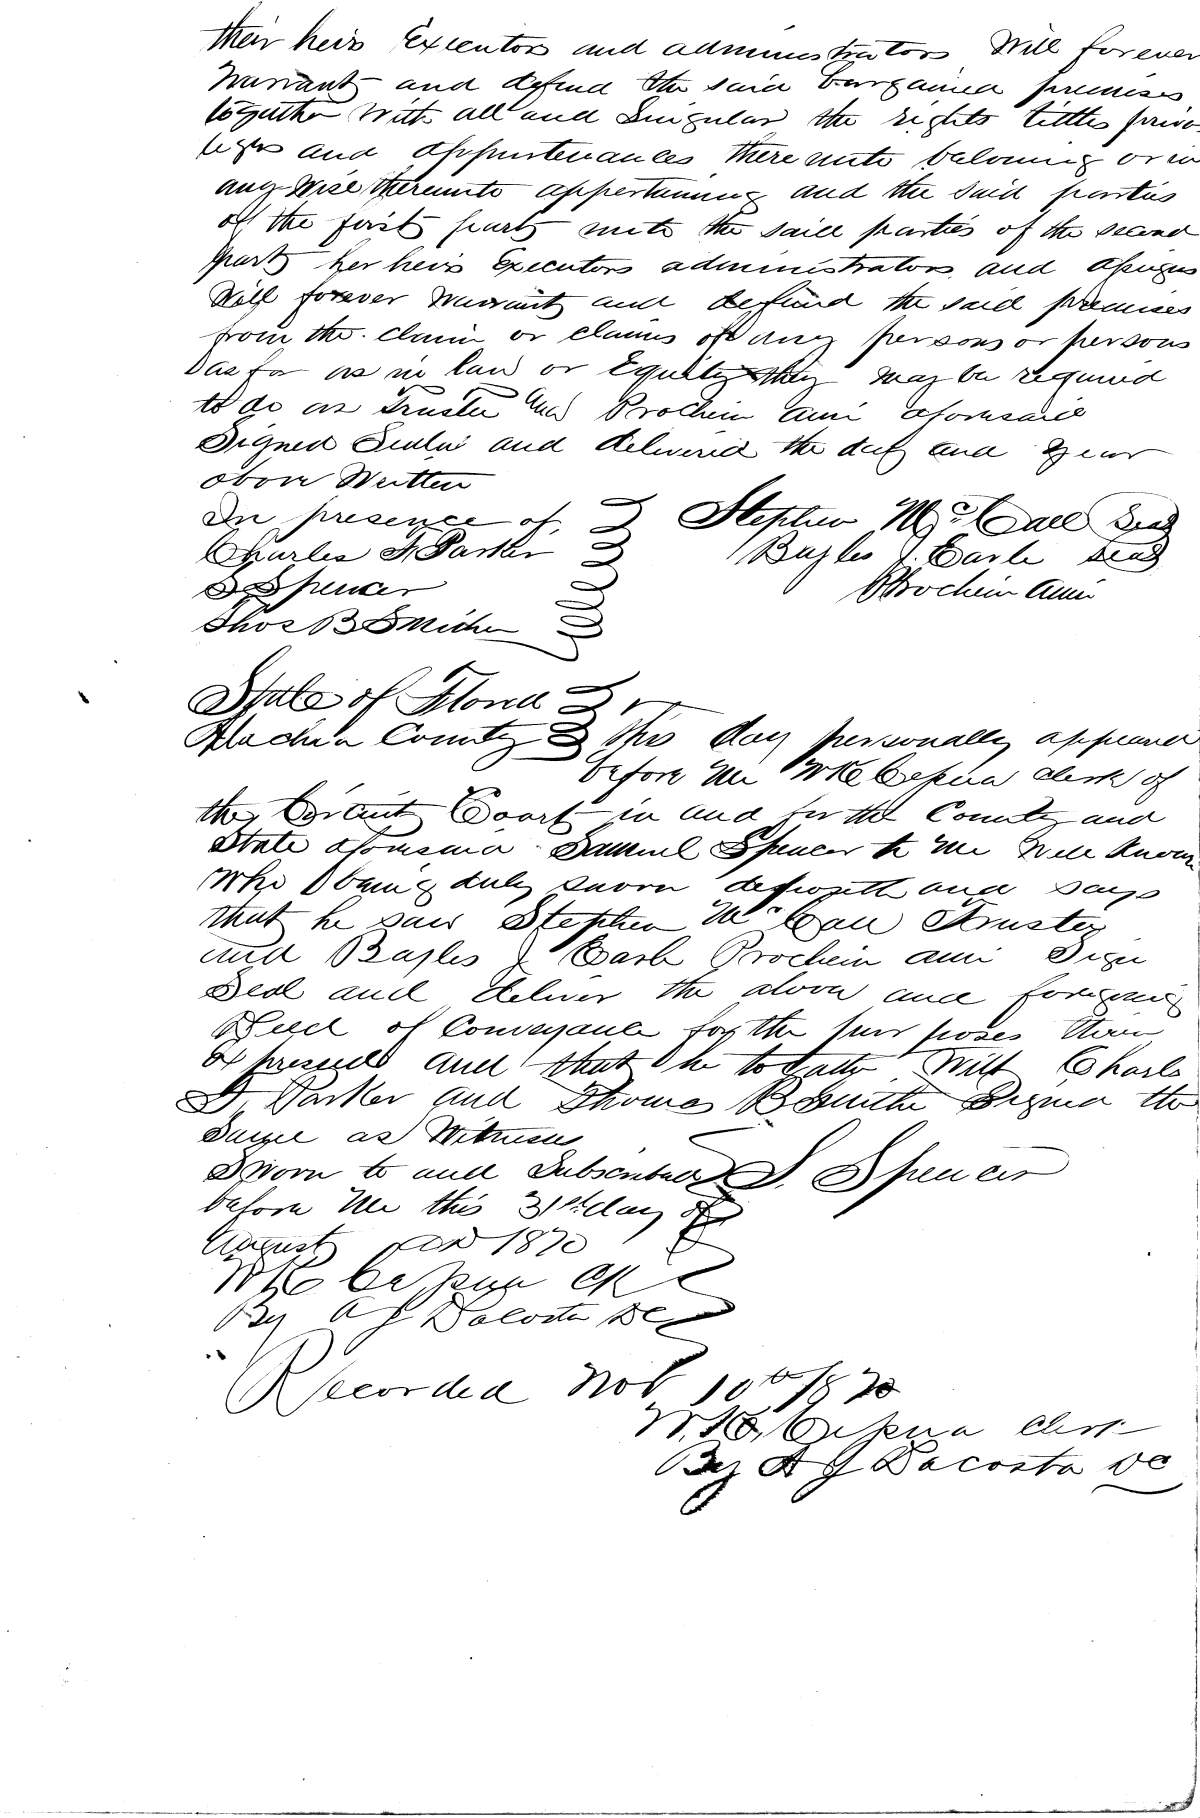 their heirs Executors and administrators Will forever
Warrant and defend the said bargained premises
together with all and Singular the rights tittles privi
leges and appurtenances there unto beloning or in
any wise thereunto appertaining and the said parties
of the first party unto the said parties of the second
party her heirs Executors administrators and assigns
Will forever Warrant and defend the said premises
from the claim or claims of any persons or persons
as far as in law or Equity they may be required
to do as Trustee and Prochein ami aforesaid
Signed Seald and delivered the day and year
above Written
In presence of Stephen McCall Seal
Charles F. Parker Bayles J. Earle Seal
S Spencer Prochein Ami
Thos B Smith
State of Florid
Alachua County This day personally appeared
before me clerk of
the Circuit Court in and for the County and
State aforesaid Samuel Spencer to me Well Known
Who being duly sworn deposeth and says
that he saw Stephen McCall Trustee
and Bayles J Earle Prochein ami Sign
Seal and deliver the above and foregoing
Deed of Conveyance for the purposes therein
expressed and that he togather With Charls
F. Parker and Thomas B Smith Signed the
Same as Witness
Sworn to and Subscribed S. Spencer
before Me this 31st day of
August AD 1870
Cessna Clk
By A J Dacosta DC
Recorded Nov 10th 1870
Cessna Clerk
By A J Dacosta DC